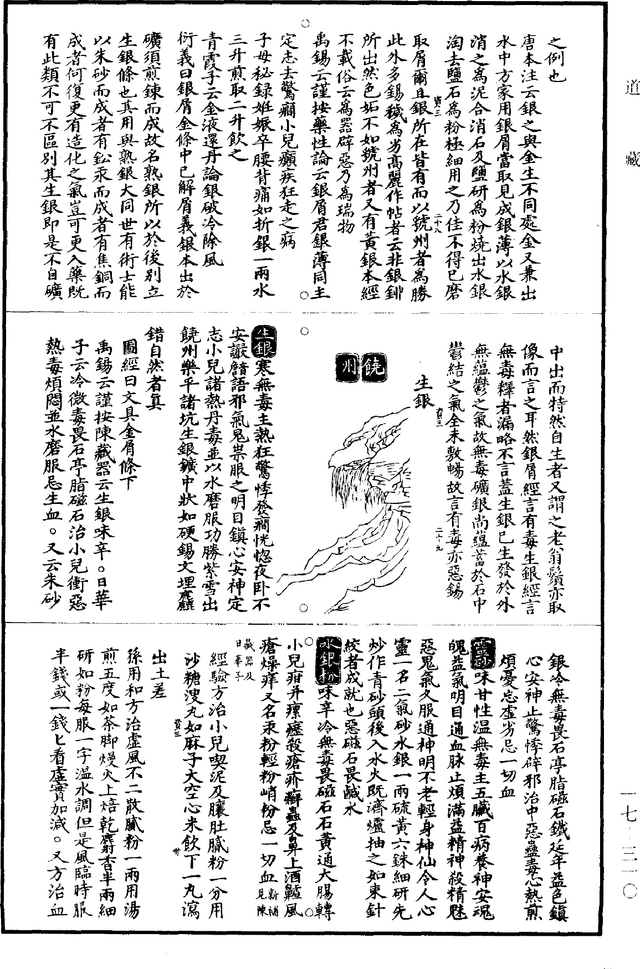 道藏
之例也
唐本注云銀之與金生不同處金又兼出
水中方家用銀屑當取見成銀薄以水銀
消之為泥合消石及鹽研為粉燒出水銀
淘去鹽石為粉極細用之乃佳不得已磨
取屑爾且銀所在皆有而以虢州者為勝
此外多錫穢為劣高麗作帖者云非銀鉚
所出然色垢不如虢州者又有黃銀本經
不載俗云為器辟惡乃為瑞物
禹錫云謹按藥性論云銀屑君銀薄同主
定志去驚癇小兒癲疾狂走之病
子母秘録妊娠卒腰背痛如折銀一兩水
三升煎取二升飲之
青霞子云金液還丹論銀破冷除風
衍義曰銀屑金條中已解屑義銀本出於
礦須煎鍊而成故名熟銀所以於後別立
生銀條也其用與熟銀大同世有術士能
以朱砂而成者有鉛汞而成者有焦銅而
成者何復更有造化之氣豈可更入藥既
有此類不可不區別其生銀即是不自礦
中出而特然自生者又謂之老翁鬚亦取
像而言之耳然銀屑經言有毒生銀經言
無毒釋者漏略不言蓋生銀已生發於外
無蘊鬱之氣故無毒礦銀尚蘊蓄於石中
鬱結之氣全未敷暢故言有毒亦惡錫
生銀
饒州
生銀寒無毒主熱狂驚悸發癇恍惚夜卧不
安讝語邪氣鬼祟服之明目鎮心安神定
志小兒諸熱丹毒並以水磨服功勝紫雪出
饒州樂平諸坑生銀鑛中狀如硬錫文理麤
錯自然者真
圖經曰文具金屑條下
禹錫云謹按陳藏器云生銀味辛。日華
子云冷微毒畏石亭脂磁石治小兒衝惡
熱毒煩悶並水磨服忌生血。又云朱砂
銀冷無毒畏石亭脂磁石鐵延年益色鎮
心安神止驚悸辟邪治中惡蠱毒心熱煎
煩憂忘虛劣忌一切血
靈砂味甘性溫無毒主五臟百病養神安魂
魄益氣明目通血脉止煩滿益精神殺精魅
惡鬼氣久服通神明不老輕身神仙令人心
靈一名二氣砂水銀一兩硫黃六銖細研先
炒作青砂頭後入水火既濟爐抽之如束針
紋者成就也惡磁石畏鹹水
水銀粉味辛冷無毒畏磁石石黃通大腸轉
小兒疳并瘰癧殺瘡疥癬蟲及鼻上酒齇風
瘡燥痒又名汞粉輕粉峭粉忌一切血新補見陳
藏器及日華子
經驗方治小兒喫泥及䑋肚膩粉一分用
沙糖溲丸如麻子大空心米飲下一丸瀉
出土差
孫用和方治虛風不二散膩粉一兩用湯
煎五度如茶脚熳火上焙乾麝香半兩細
研如粉每服一字溫水調但是風臨時服
半錢或一錢匕看虛實加減。又方治血
一七－三一〇